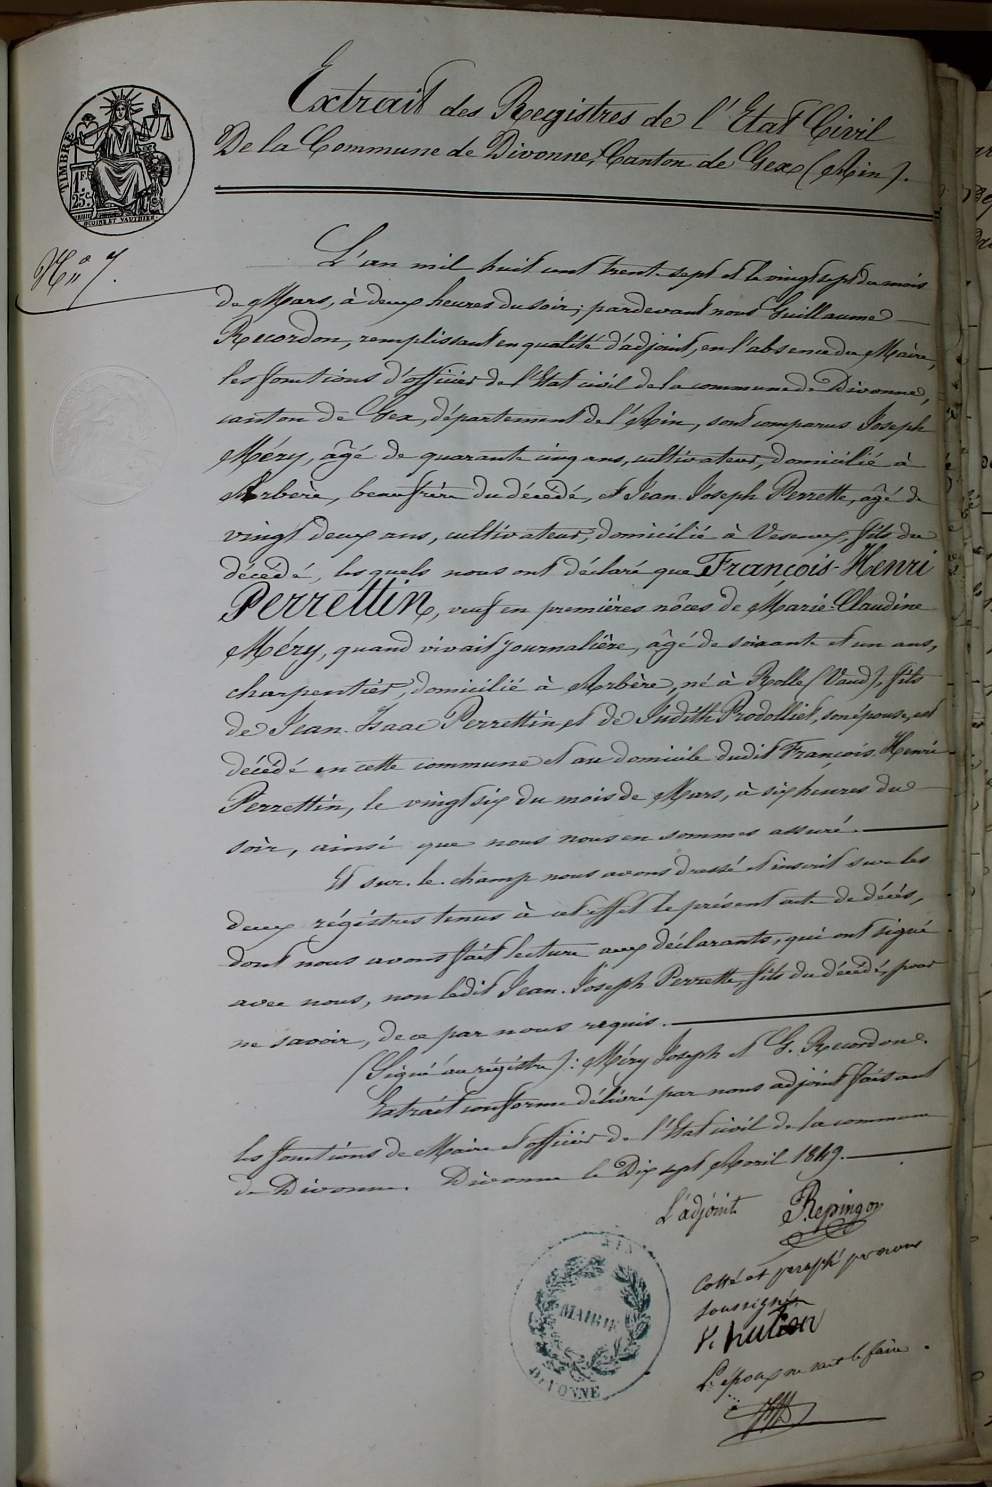 Extrait des Registres de l'Etat Civil
De la Commune de Divonne, Canton de Gex (Ain).
TIMBRE
1F.
25c.
N° 7.
L'an mil huit cent trente sept et le vingt sept du mois
de Mars, à deux heures du soir; pardevant nous Guillaume
Recordon, remplissant en qualité d'adjoint, en l'absence du Maire,
les fonctions d'officier de l'Etat civil de la commune de Divonne,
canton de Gex, département de l'Ain, sont comparus Joseph
Méry, âgé de quarante cinq ans, cultivateur, domicilié à
Arbère, beaufrère du décédé, et Jean-Joseph Perrette, âgé de
vingt deux ans, cultivateur, domicilié à Vesenex, fils du
décédé, lesquels nous ont déclaré que François-Henri
Perrettin, veuf en premières nôces de Marie-Claudine
Méry, quand vivait journalière, âgé de soixante et un ans,
charpentier, domicilié à Arbère, né à Rolle (Vaud), fils
de Jean-Isaac Perrettin et de Judith Rodolliet, son épouse, est
décédé en cette commune et au domicile dudit François-Henri
Perrettin, le vingt six du mois de Mars, à six heures du
soir, ainsi que nous nous en sommes assuré.
Et sur-le-champ nous avons dressé et inscrit sur les
deux régistres tenus à cet effet le présent acte de décès,
dont nous avons fait lecture aux déclarants, qui ont signé
avec nous, non ledit Jean-Joseph Perrette, fils du décédé, pour
ne savoir, de ce par nous requis.
(Signé au régistre): Méry Joseph et G. Recordon.
Extrait conforme délivré par nous adjoint faisant
les fonctions de Maire et officier de l'Etat civil de la commune
de Divonne. Divonne le Dix sept Avril 1849.
L'adjoint Repingon
AIN
MAIRIE
DIVONNE
Cotté et paraphé par nous
soussignés
L'époux ne sait le faire.